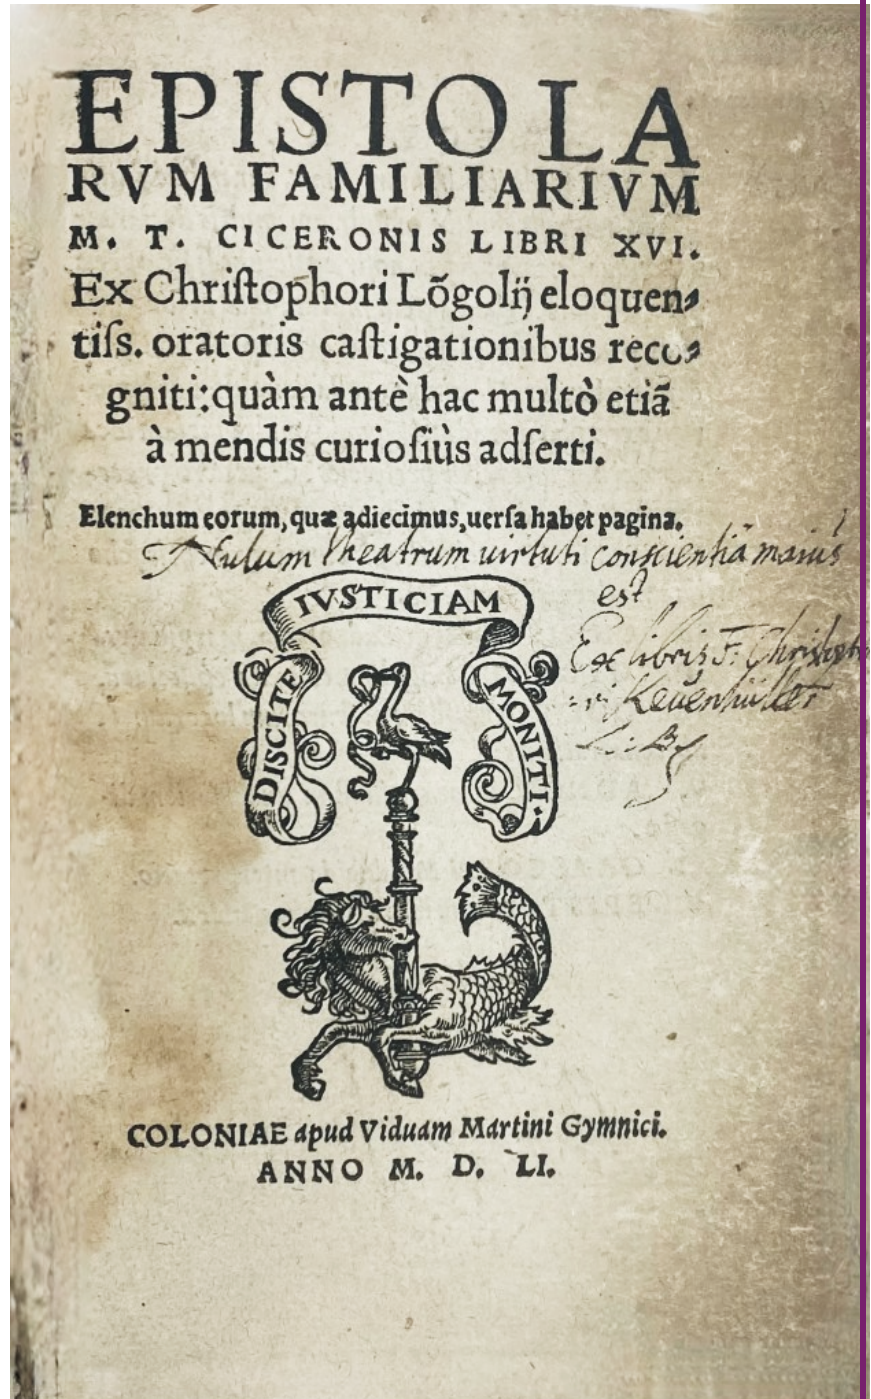 EPISTOLA
RVM FAMILIARIVM
M. T. CICERONIS LIBRI XVI.
Ex Chriſtophori Lõgolij eloquen⸗
tiſs. oratoris caſtigationibus reco⸗
gniti:quàm antè hac multò etiã
à mendis curioſiùs adſerti.
Elenchum eorum, quæ adiecimus, uerſa habet pagina.
Nulum theatrum uirtuti conscientiã maius
est
IVSTICIAM
Ex libris F. Christoph
DISCITE
MONITI.
Keuenhüller
L: B
COLONIAE apud Viduam Martini Gymnici.
ANNO M. D. LI.